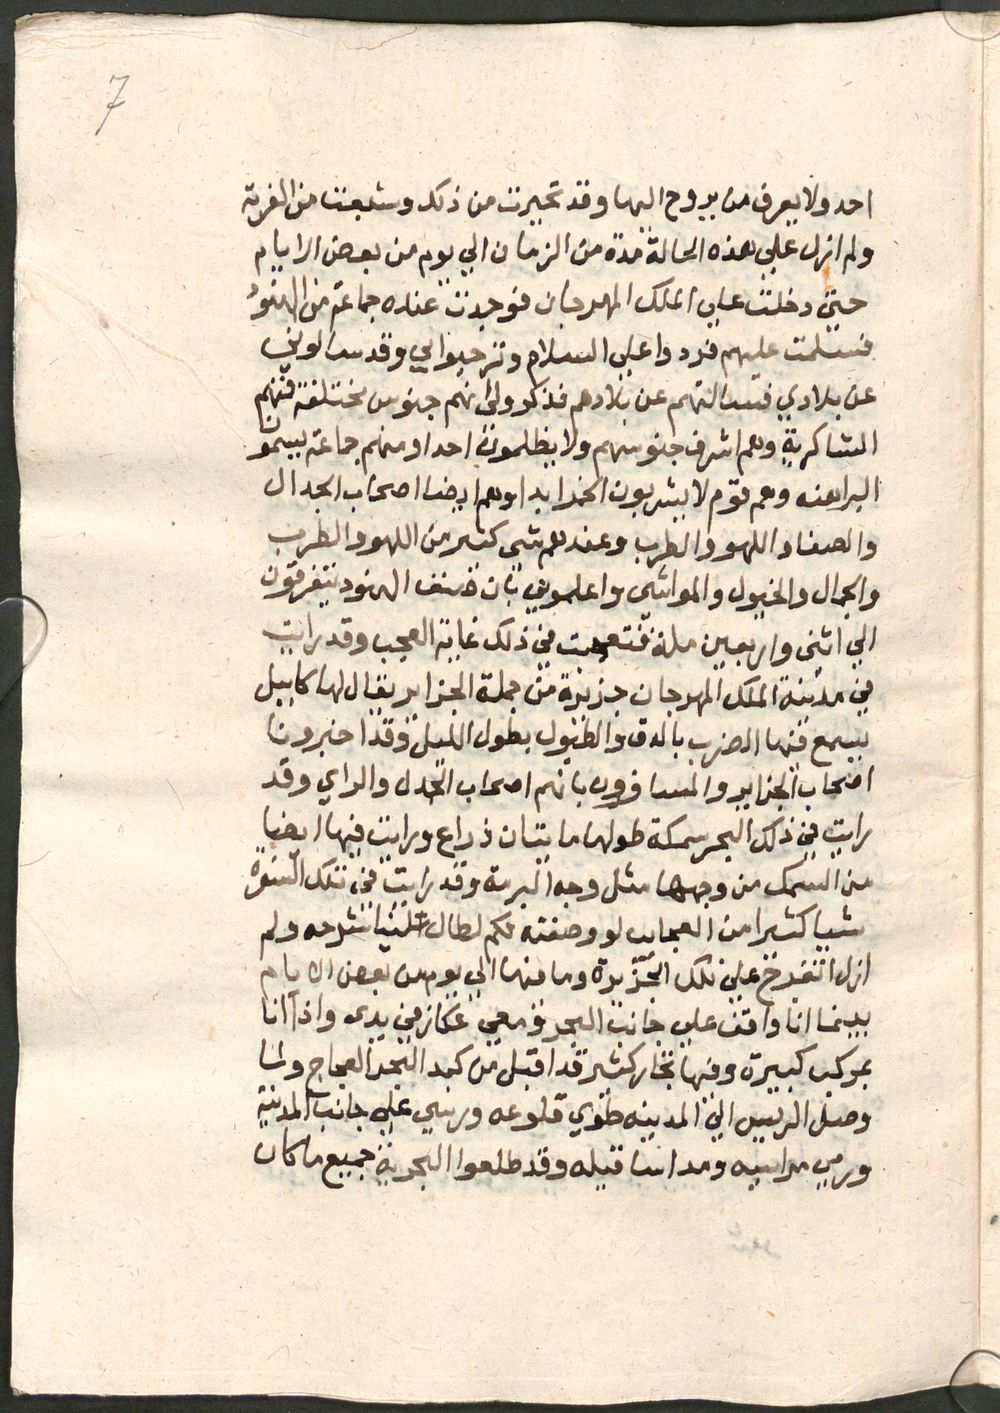 7
احد ولا يعرف من يروح اليها وقد تحيرت من ذلك وشبعت من الغربة
ولم ازل علي هذه الحالة مدة من الزمان الي يوم من بعض الايام
حتي دخلت علي الملك المهرجان فوجدت عنده جماعة من الهنود
فسلمت عليهم فردوا علي السلام وترحبوا بي وقد سالوني
عن بلادي فسالتهم عن بلادهم فذكروا لي انهم جنوس مختلفة فمنهم
الشاكرية وهم اشرف جنوسهم ولا يظلمون احدا ومنهم جماعة يسمون
البراهنه وهم قوم لا يشربون الخمر ابدا وهم ايضا اصحاب الجدال
والصفا واللهو والطرب وعندهم شي كتير من اللهو والطرب
والجمال والخيول والمواشي واعلموني بان صنف الهنود يتفرقون
الي اثنى واربعين ملة فتعجبت من ذلك غاية العجب وقد رايت
في مدينة الملك المهرجان جزيرة من جملة الجزاير يقال لها كابيل
يسمع فيها الضرب بالدف والطبول بطول الليل وقد اخبرونا
اصحاب الجزاير والمسافرون بانهم اصحاب الجدل والراي وقد
رايت في ذلك البحر سمكة طولها مايتان ذراع ورايت فيها ايضا
من السمك من وجهها مثل وجه البرمة وقد رايت في تلك السفرة
شيا كثيرا من العجايب لو وصفته لكم لطال علينا شرحه ولم
ازل اتفرج علي تلك الجزيرة وما فيها الي يوم من بعض الايام
بينما انا واقف علي جانب البحر ومعي عكاز في يدي واذا انا
بمركب كبيرة وفيها تجار كثير قد اقبل من كبد البحر العجاج ولما
وصل الريس الي المدينه طوي قلوعه ورسي علي جانب المدينة
ورمي مراسيه ومد اسقيله وقد طلعوا البحرية جميع ما كان